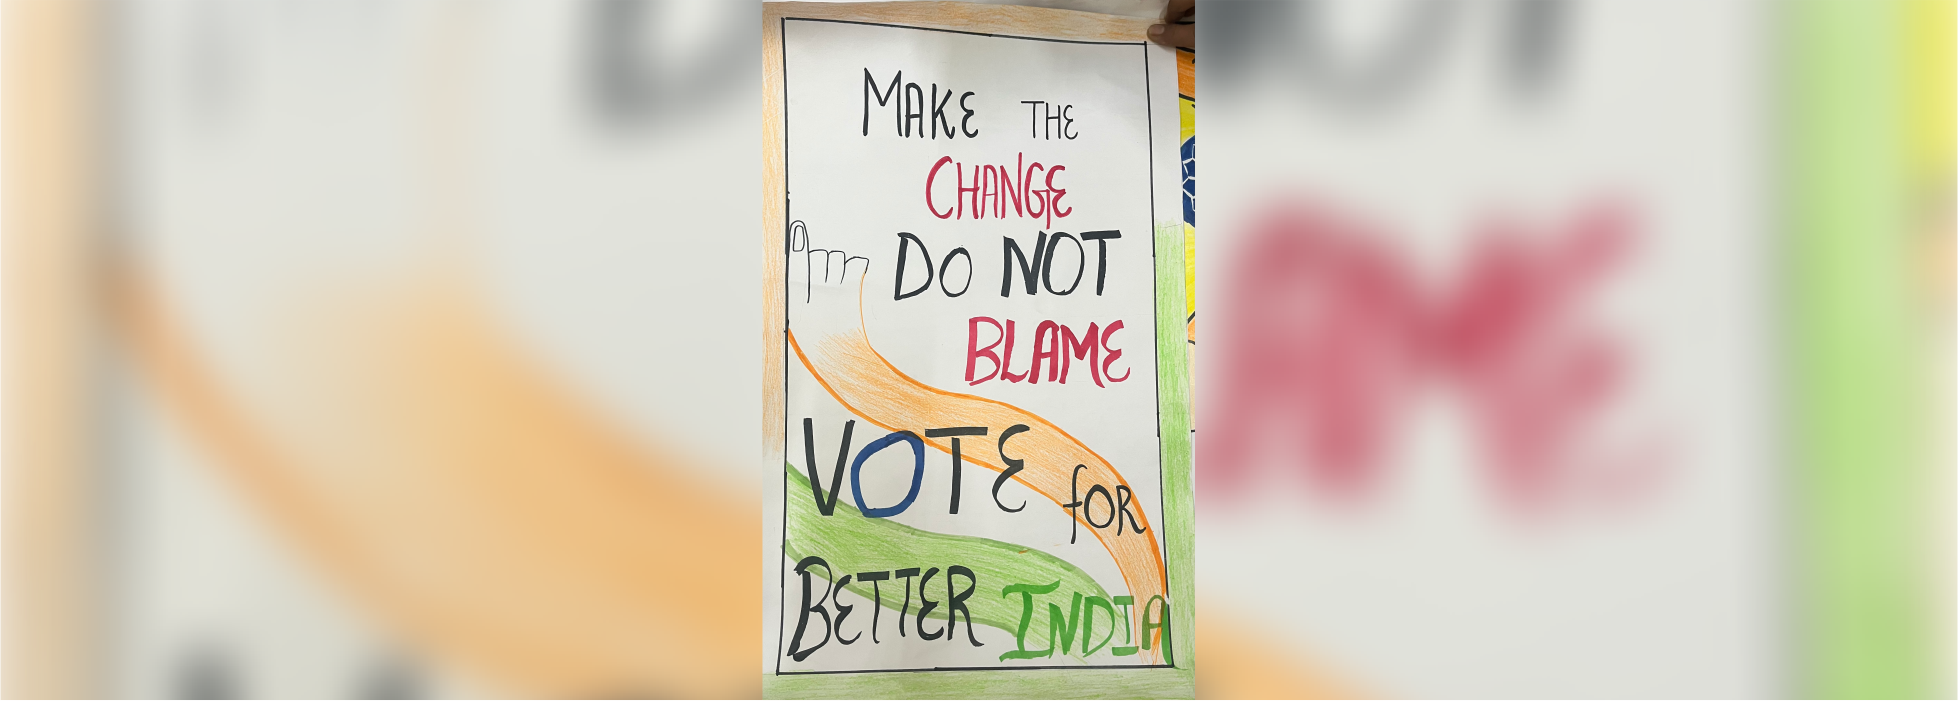 MAKE THE
CHANGE
DO NOT
BLAME
VOTE fOR
BETTER INDIA